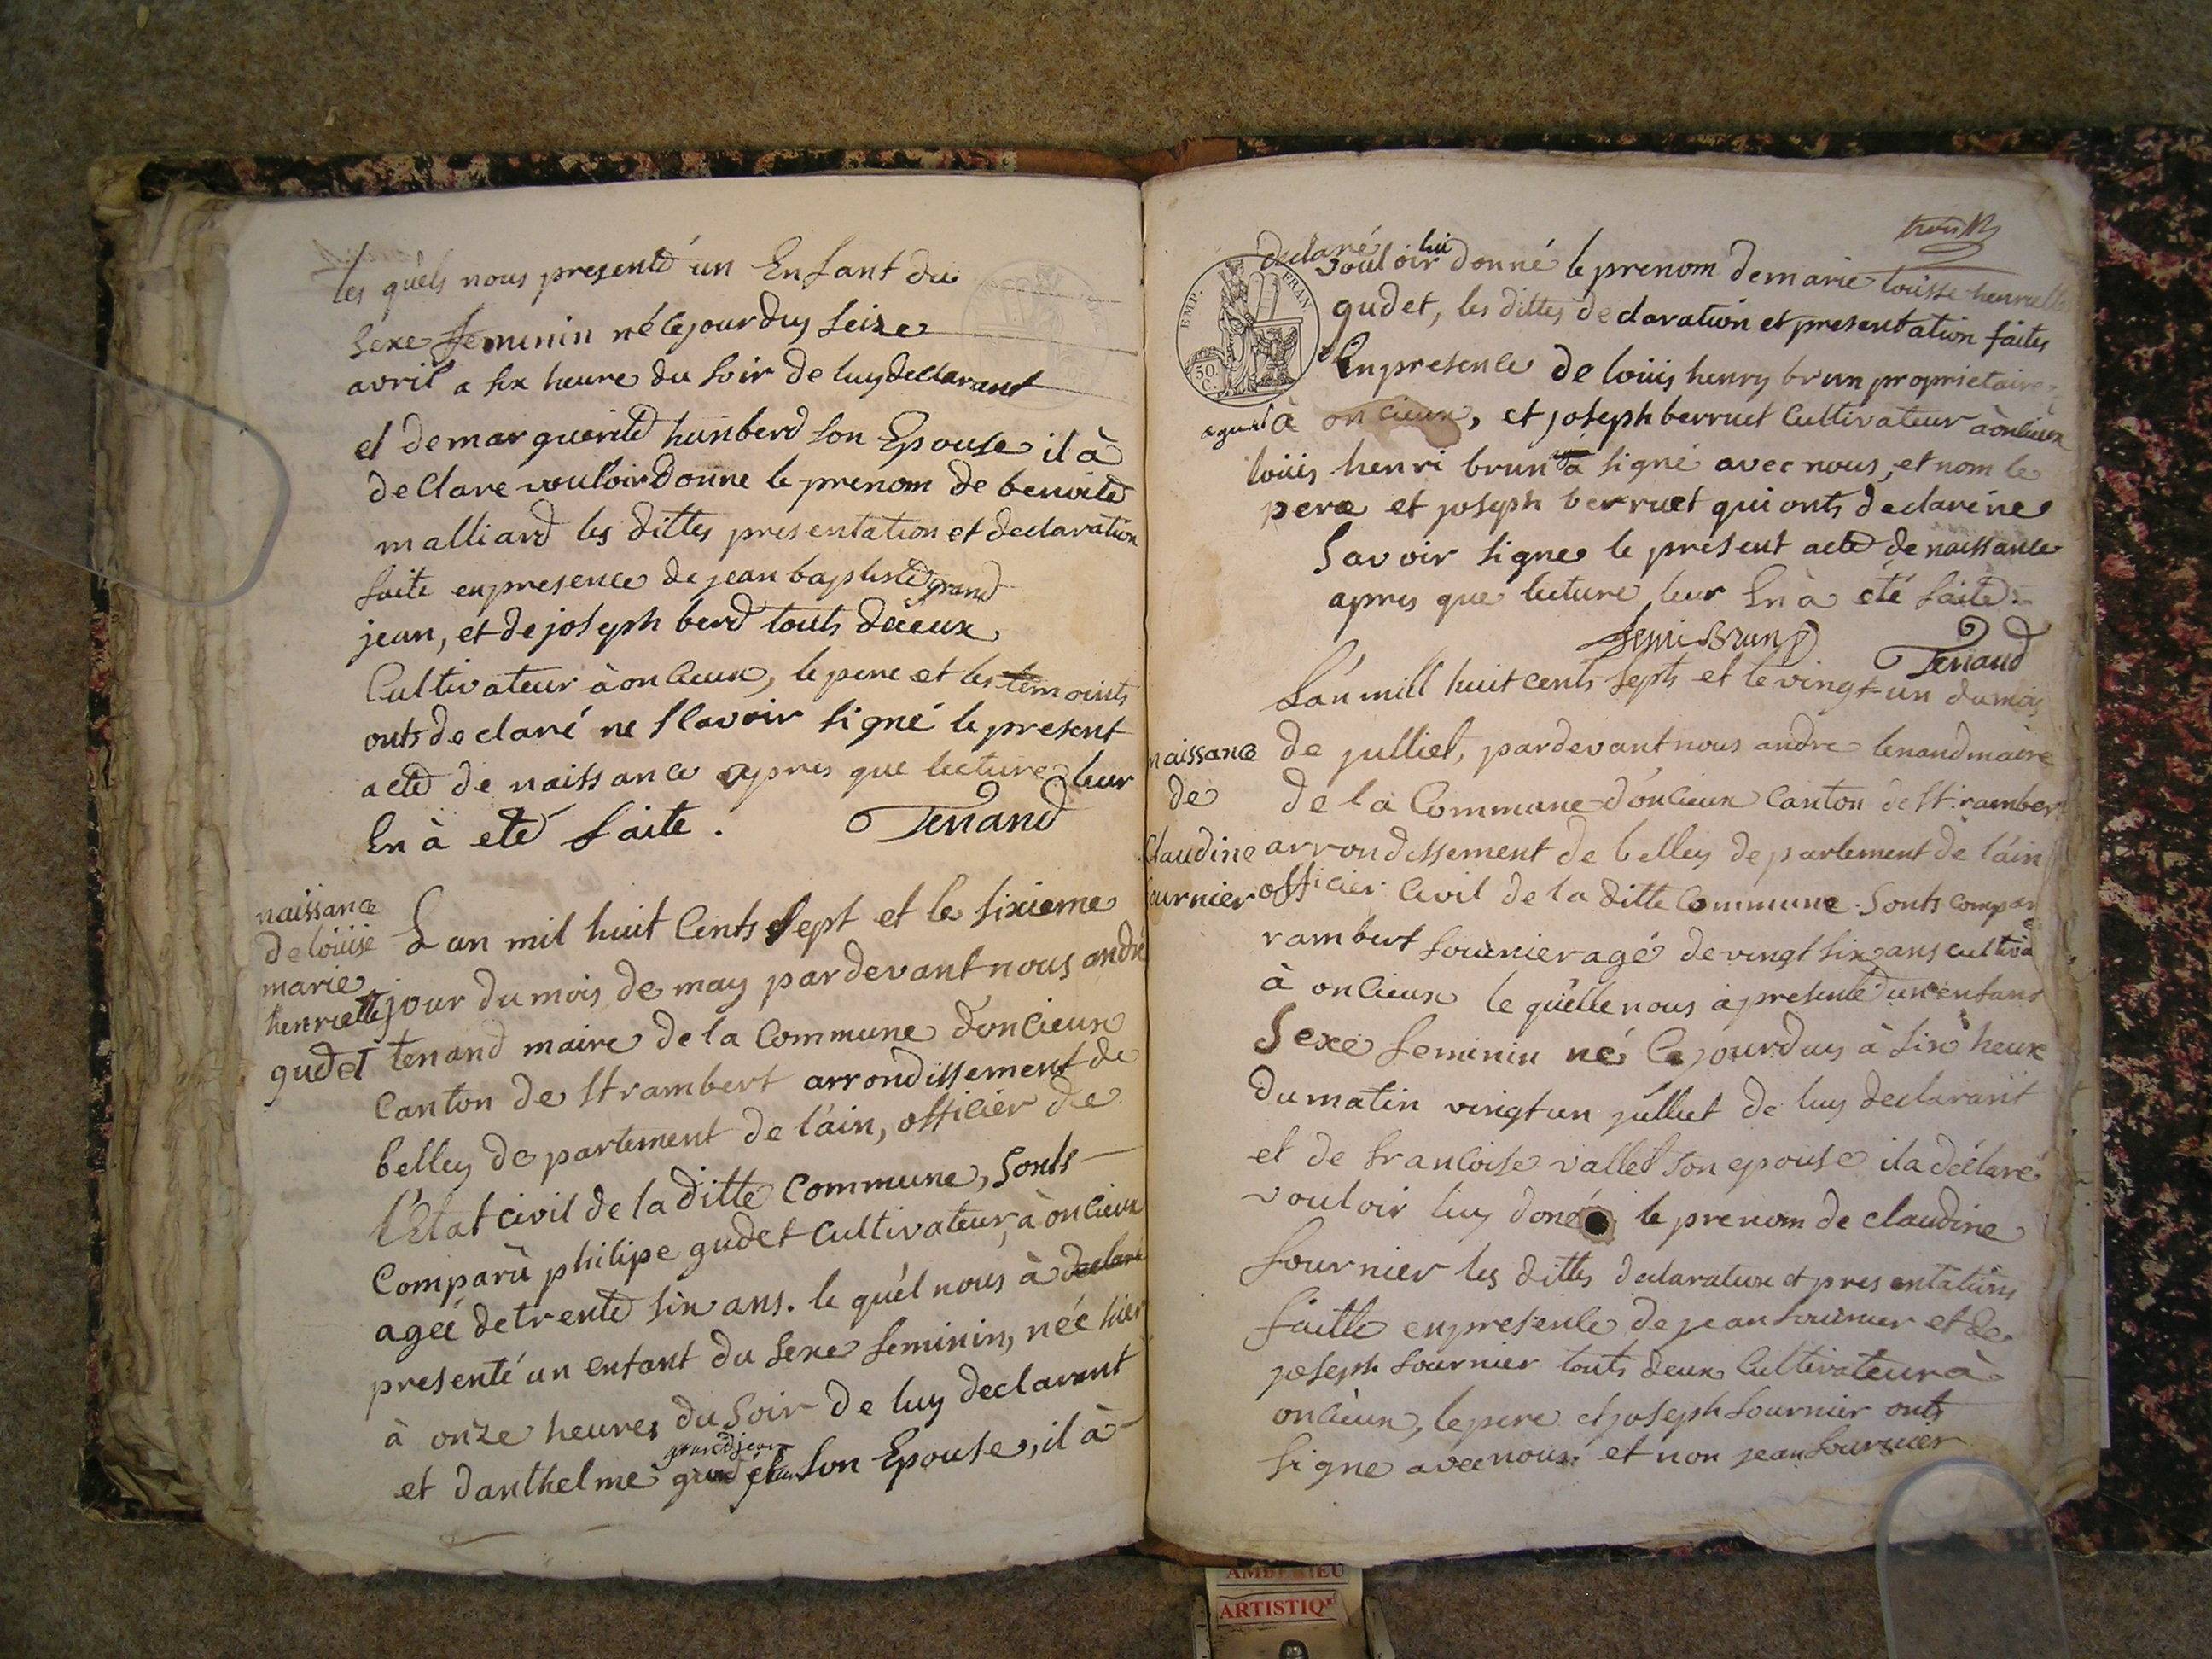 les quels nous presenté un Enfant du
sexe feminin né cejourduy seize
avril a six heure du soir de luy declarant
et de marguerite humberd son Epouse il à
declare vouloir donne le prenom de benoite
malliard les dittes presentation et declaration
faite en presence de jean baptiste grand
jean, et de joseph berd touts deeux
Cultivateur à oncieux, le pere et les temoints
onts declaré ne sçavoir signé le present
acte de naissance apres que lecture leur
En à eté faite. Tenand
naissance
de loüise
marie
henriette
gudet
Lan mil huit Cents sept et le sixieme
jour du mois de may pardevant nous andré
tenand maire de la Commune d'oncieux
Canton de St rambert arrondissement de
belley departement de l'ain, officier de
l'Etat civil de la ditte Commune, sonts
Comparù philipe gudet Cultivateur, à oncieux
agéé de trente six ans. le quél nous à declaré
presenté un enfant du sexe feminin, néé hier
à onze heures du soir de luy declarant
grandjean
et danthelme son Epouse, il à
declaré
vouloir lui donné le prenom de marie loüisse henriette
EMP. FRAN.
50 C.
gudet, les dittes declaration et presentation faites
En presence de loüis henry brun proprietaire
à oncieux, et joseph berruet Cultivateur à oncieux
loüis henri brun à signé avec nous, et nom le
pere et joseph berruet qui onts declaré ne
savoir signe le present acte de naissance
apres que lecture leur En à été faite.
henri Brun Tenand
L'an mill huit cents septs et le vingt-un du mois
naissance
de
Claudine
fournier
de julliet, pardevant nous andré tenand maire
de la Commune d'oncieux Canton de St. rambert
arrondissement de belley departement de l'ain
officier Civil de la ditte Commune. sonts compar
rambert fournier agé de vingt six ans cultiva
à oncieux le quélle nous à presenté un enfant
sexe feminin né Ce jourduy à six heure
du matin vingt un julliet de luy declarant
et de francoise vallet son epouse il a déclaré
vouloir luy doné le prenom de claudine
fournier les dittes declaration et presentations
faitte en presence de jean fournier et de
joseph fournier touts deux Cultivateur à
oncieux, le pere et joseph fournier onts
signe avec nous. et non jean fournier
AMBERIEU
ARTISTIQUE